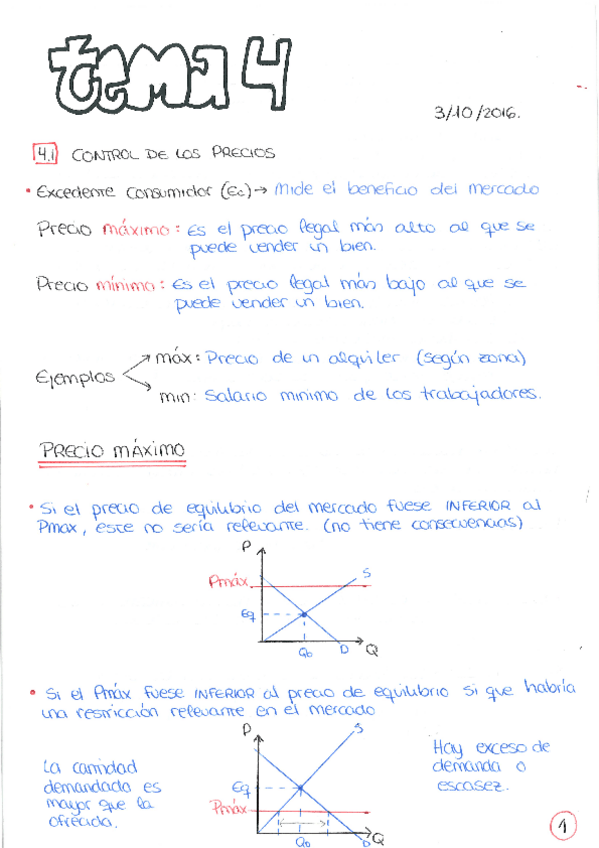 tema 4
3/10/2016.
4.1 CONTROL DE LOS PRECIOS
• Excedente Consumidor (Ec) → Mide el beneficio del mercado
Precio máximo: Es el precio legal más alto al que se
puede vender un bien.
Precio mínimo: Es el precio legal más bajo al que se
puede vender un bien.
Ejemplos
máx: Precio de un alquiler (según zona)
min: Salario minimo de los trabajadores.
PRECIO MÁXIMO
• Si el precio de equilibrio del mercado fuese INFERIOR al
Pmax, este no sería relevante. (no tiene consecuencias)
P
Pmáx
S
Eq
Qo D Q
• Si el Pmáx fuese INFERIOR al precio de equilibrio si que habría
una restricción relevante en el mercado
P
S
La cantidad
demandada es
mayor que la
ofrecida.
Eq
Pmáx
Qo D Q
Hay exceso de
demanda o
escasez.
1